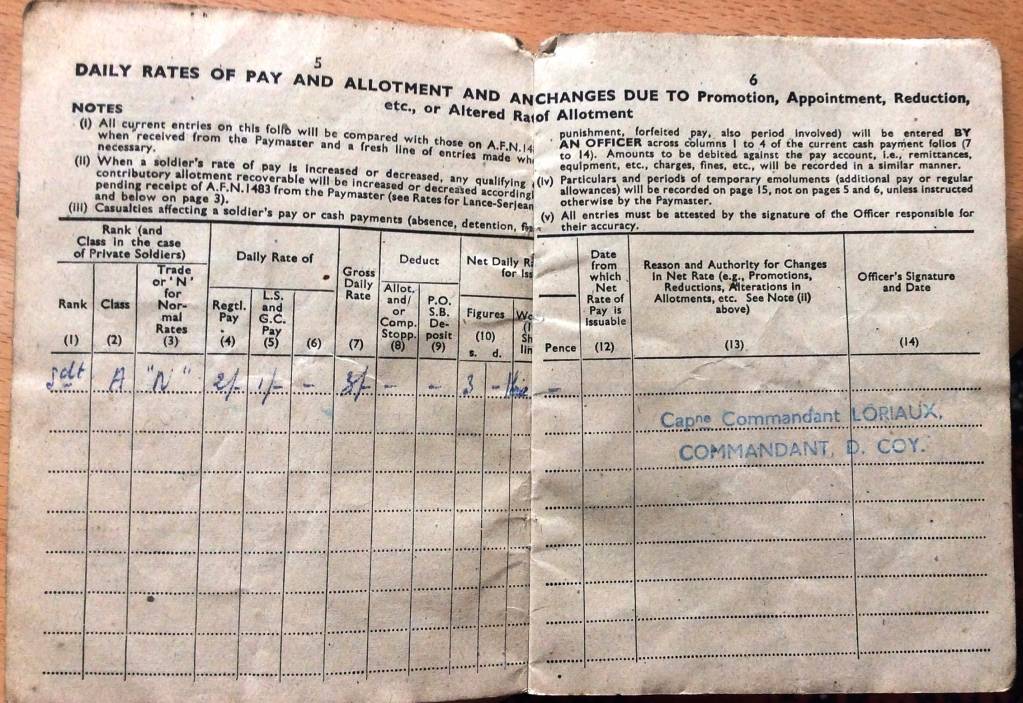 5
DAILY RATES OF PAY AND ALLOTMENT AND AN
etc., or Altered Ra
NOTES
(i) All current entries on this folio will be compared with those on A.F.N.14
when received from the Paymaster and a fresh line of entries made wh
necessary.
(ii) When a soldier's rate of pay is increased or decreased, any qualifying
contributory allotment recoverable will be increased or decreased according
pending receipt of A.F.N.1483 from the Paymaster (see Rates for Lance-Serjean
and below on page 3).
(iii) Casualties affecting a soldier's pay or cash payments (absence, detention,
Rank (and
Class in the case
of Private Soldiers)
Rank
(1)
Class
(2)
Trade
or 'N'
for
Nor-
mal
Rates
(3)
Daily Rate of
Regtl.
Pay
(4)
L.S.
and
G.C.
Pay
(5)
(6)
Gross
Daily
Rate
(7)
Deduct
Allot.
and/
or
Comp.
Stopp.
(8)
P.O.
S.B.
De-
posit
(9)
Net Daily R
for Iss
Figures
(10)
s. d.
Wo
(1
Sh
lin
Sdt A "N" 2/- 1/- - 3/- - - 3 -
6
CHANGES DUE TO Promotion, Appointment, Reduction,
of Allotment
punishment, forfeited pay, also period involved) will be entered BY
AN OFFICER across columns 1 to 4 of the current cash payment folios (7
to 14). Amounts to be debited against the pay account, i.e., remittances,
equipment, etc., charges, fines, etc., will be recorded in a similar manner.
(iv) Particulars and periods of temporary emoluments (additional pay or regular
allowances) will be recorded on page 15, not on pages 5 and 6, unless instructed
otherwise by the Paymaster.
(v) All entries must be attested by the signature of the Officer responsible for
their accuracy.
Pence
Date
from
which
Net
Rate of
Pay is
issuable
(12)
Reason and Authority for Changes
in Net Rate (e.g., Promotions,
Reductions, Alterations in
Allotments, etc. See Note (ii)
above)
(13)
Officer's Signature
and Date
(14)
-
Capne Commandant LORIAUX,
COMMANDANT, D. COY.